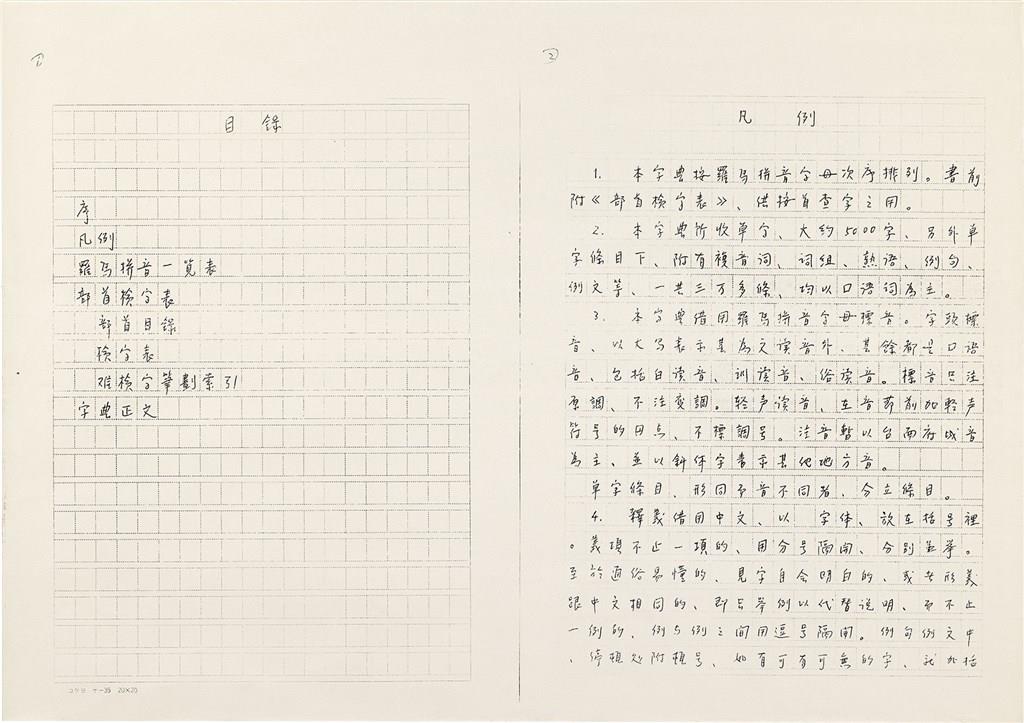 1
目錄
序
凡例
羅馬拼音一覧表
部首檢字表
部首目錄
檢字表
难檢字筆劃索引
字典正文
コクヨ ケ-35 20×20
2
凡例
1. 本字典按羅馬拼音字母次序排列。書前
附《部首檢字表》、供按首查字之用。
2. 本字典所收单字、大約5000字、另外单
字條目下、附有複音词、词組、熟语、例句、
例文等、一共三万多條、均以口语词為主。
3. 本字典借用羅馬拼音字母標音。字頭標
音、以大写表示其為文读音外、其餘都是口语
音、包括白读音、训读音、俗读音。標音只注
原調、不注变調。轻声读音、在音节前加輕声
符号的圆点、不標調号。注音暫以台南府城音
為主、並以斜体字書示其他地方音。
单字條目、形同而音不同者、分立條目。
4. 釋義借用中文、以 字体、放在括号裡
。義項不止一項的、用分号隔開、分别並举。
至於通俗易懂的、見字自会明白的、或者形義
跟中文相同的、即只举例以代替说明、而不止
一例的、例与例之间用逗号隔開。例句例文中
、停頓处附頓号、如有可有可無的字、就外括